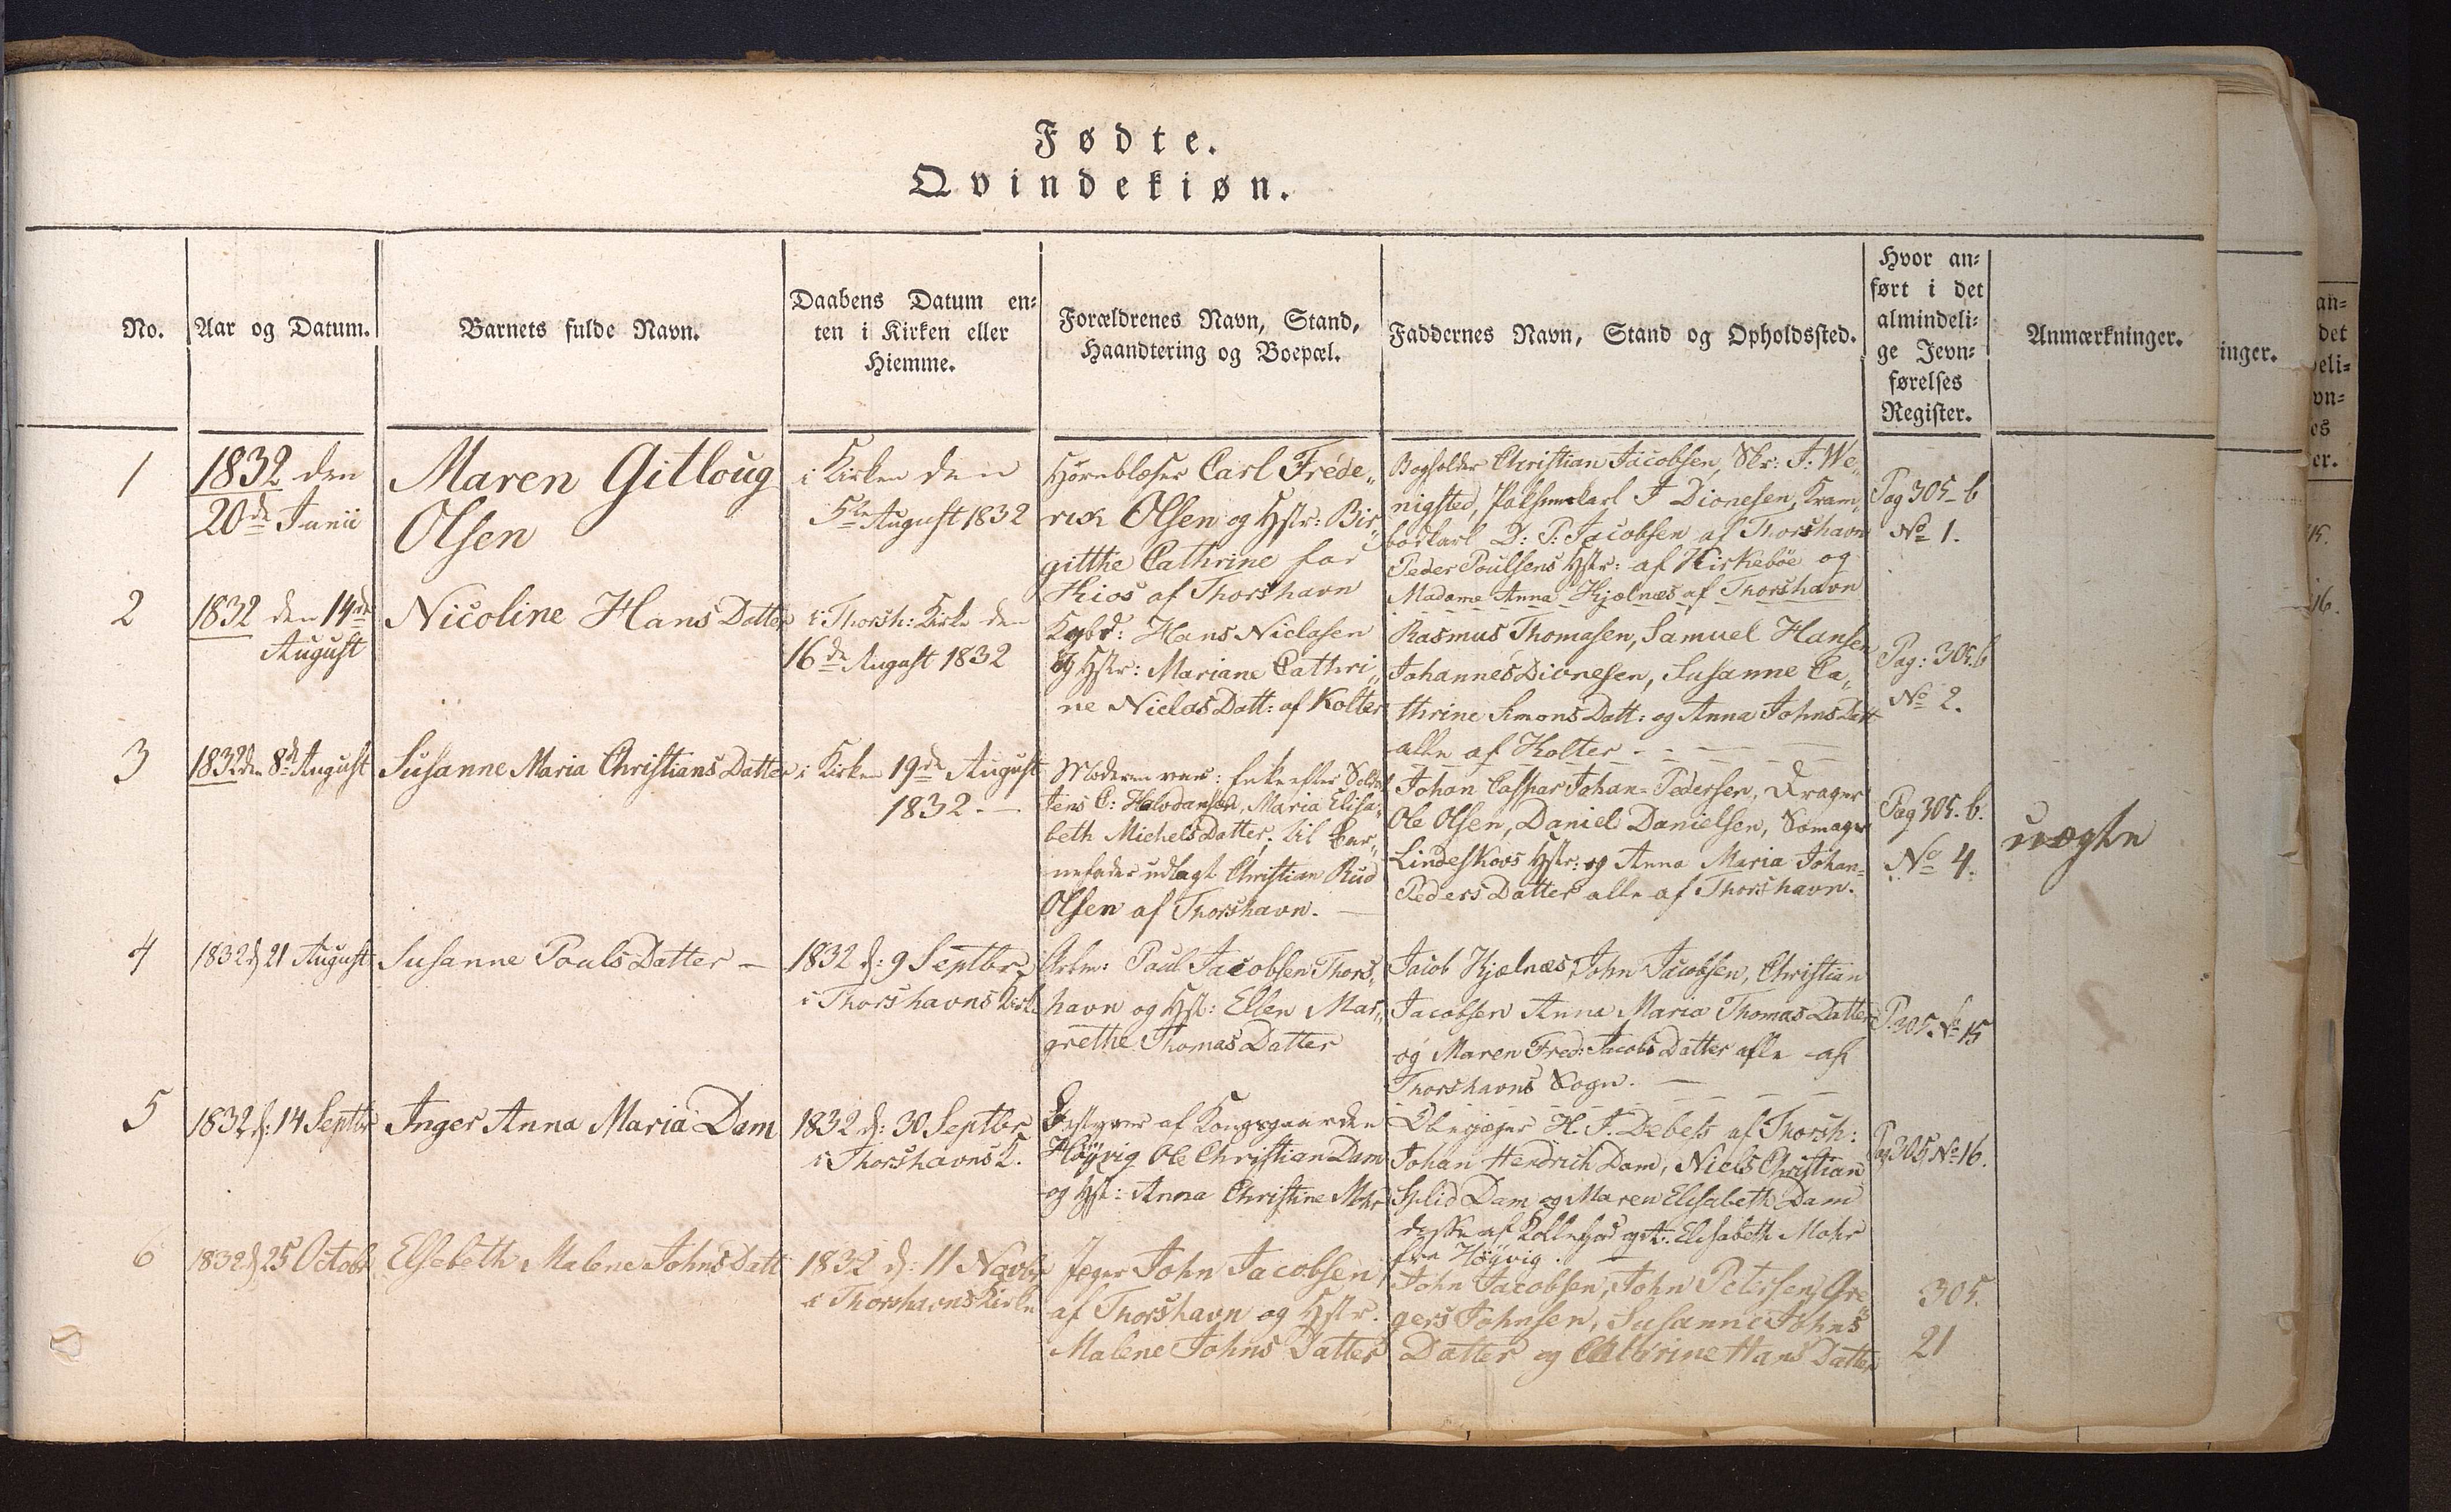 Fødte.
Qvindekiøn.
No.
Aar og Datum.
Barnets fulde Navn.
Daabens Datum en-
ten i Kirken eller
Hiemme.
Forældrenes Navn, Stand,
Haandtering og Boepæl.
Faddernes Navn, Stand og Opholdssted.
Hvor an-
ført i det
almindeli-
ge Jevn-
førelses
Register.
Anmærkninger.
1
1832 den
20de Junii
Maren Gitloug
Olsen
i Kirken den
5te August 1832
Hornblæser Carl Frede„
rick Olsen og Hstr: Bir„
gitthe Cathrine
Kios af Thorshavn
Bogholder Christian Jacobsen, Skr: J: We„
nigsted, J Dionesen, Kram„
bodkarl D: P: Jacobsen af Thorshavn
Peder Poulsens Hstr: af Kirkebøe og
Madame Anna Kjølnæs af Thorshavn
Pag 305-b
No 1.
2
1832 den 14de
August
Nicoline Hans Datter
i Thorsh: Kirke den
16de August 1832
Kgbd: Hans Niclasen
og Hstr: Mariane Cathri„
ne Niclas Datt: af Kolter
Rasmus Thomasen, Samuel Hansen
Johannes Dionesen, Susanne Ca„
thrine Simons Datt: og Anna Johns Datt
alle af Kolter
Pag: 305.b
No 2.
3
1832 den 8de August
Susanne Maria Christians Datter
i Kirken 19de August
1832
Moderen var: Enke efter Soldat
Jens C: Halvdansen, Maria Elisa„
beth Michels Datter; til Bar„
nefader udlagt Christian Rud
Olsen af Thorshavn.
Johan Caspar Johan-Pedersen,
Ole Olsen, Daniel Danielsen, Somager
Lindeskovs Hstr: og Anna Maria Johan-
Peders Datter alle af Thorshavn.
Pag 305. b.
No 4.
uægte
4
1832 d 21 August
Susanne Pouls Datter
1832 d: 9 Septbr
i Thorshavns Kirke
Arbm: Poul Jacobsen Thors„
havn og Hst: Ellen Mar„
grethe Thomas Datter
Jacob Kjølnæs, John Jacobsen, Christian
Jacobsen Anna Maria Thomas Datter
og Maren Fred: Jacobs Datter alle af
Thorshavns Sogn.
P. 305. No 15
5
1832 d: 14 Septbr
Inger Anna Maria Dam
1832 d: 30 Septbr
i Thorshavns K.
af Kongsgaarden
Høyvig Ole Christian Dam
og Hst: Anna Christine Mohr
Oberjæger H. J. Debets af Thorsh:
Johan Hendrich Dam, Niels Christian
Splid Dam og Maren Elisabeth Dam
disse af Kollefjord og A: Elisabeth Mohr
fra Høyvig.
Pag 305, No 16.
6
1832 d 25 Octobr
Elsebeth Malene Johns Datt
1832 d: 11 Novbr
i Thorshavns Kirke
Jæger John Jacobsen
af Thorshavn og Hstr.
Malene Johns Datter
John Jacobsen, John Petersen, Gre„
gers Johnsen, Susanne Johns
Datter og Cathrine Hans Datter
305.
21